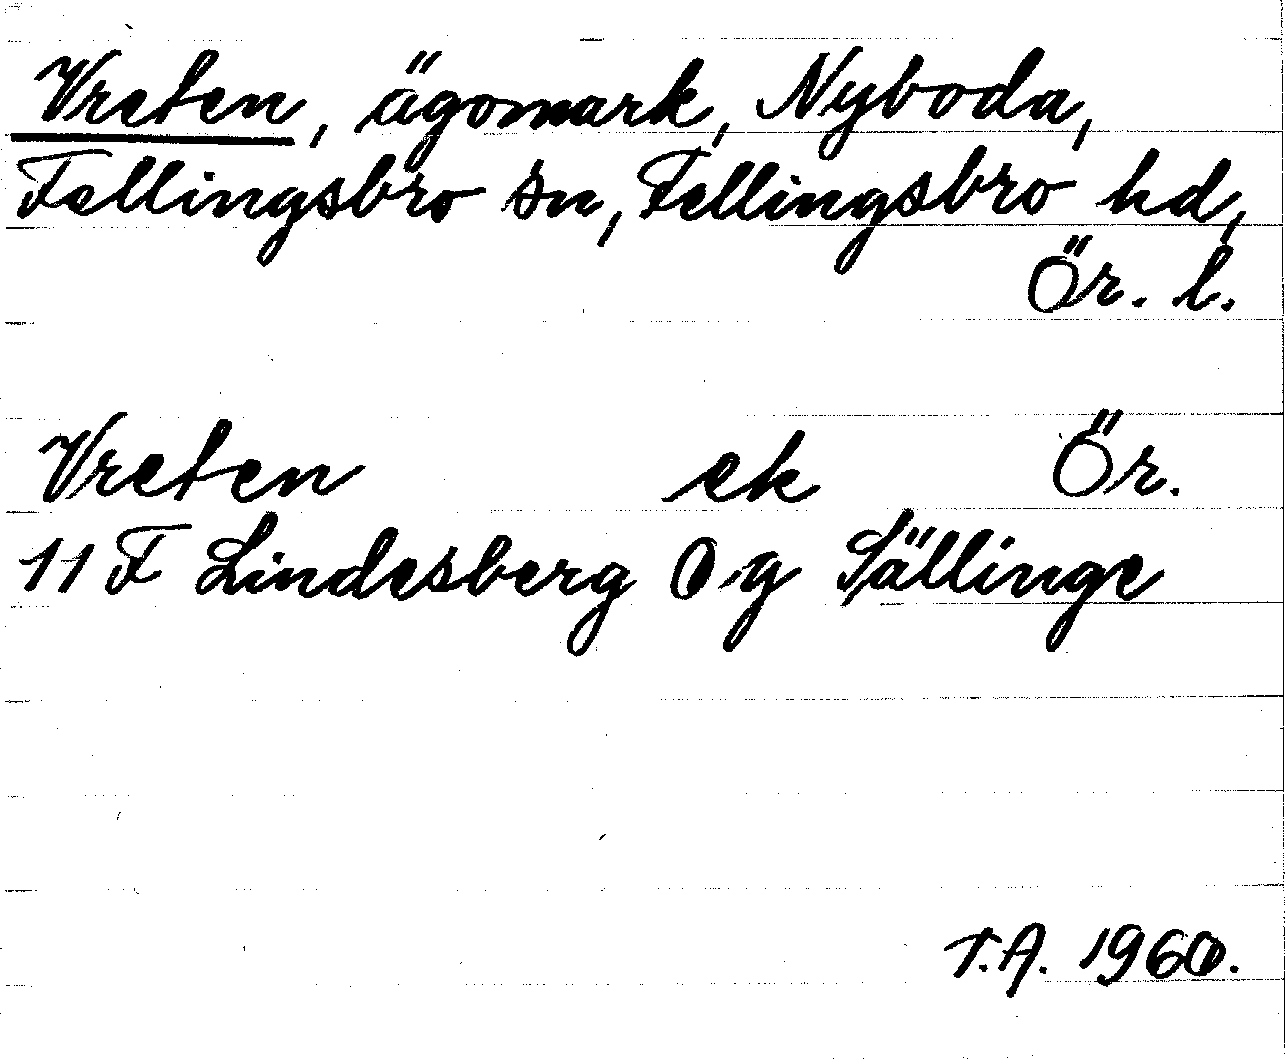 Vreten, ägomark, Nyboda,
Fellingsbro sn, Fellingsbro hd,
Ör. l.
Vreten ek Ör.
11 F Lindesberg 0 g Sällinge
T.A. 1960.